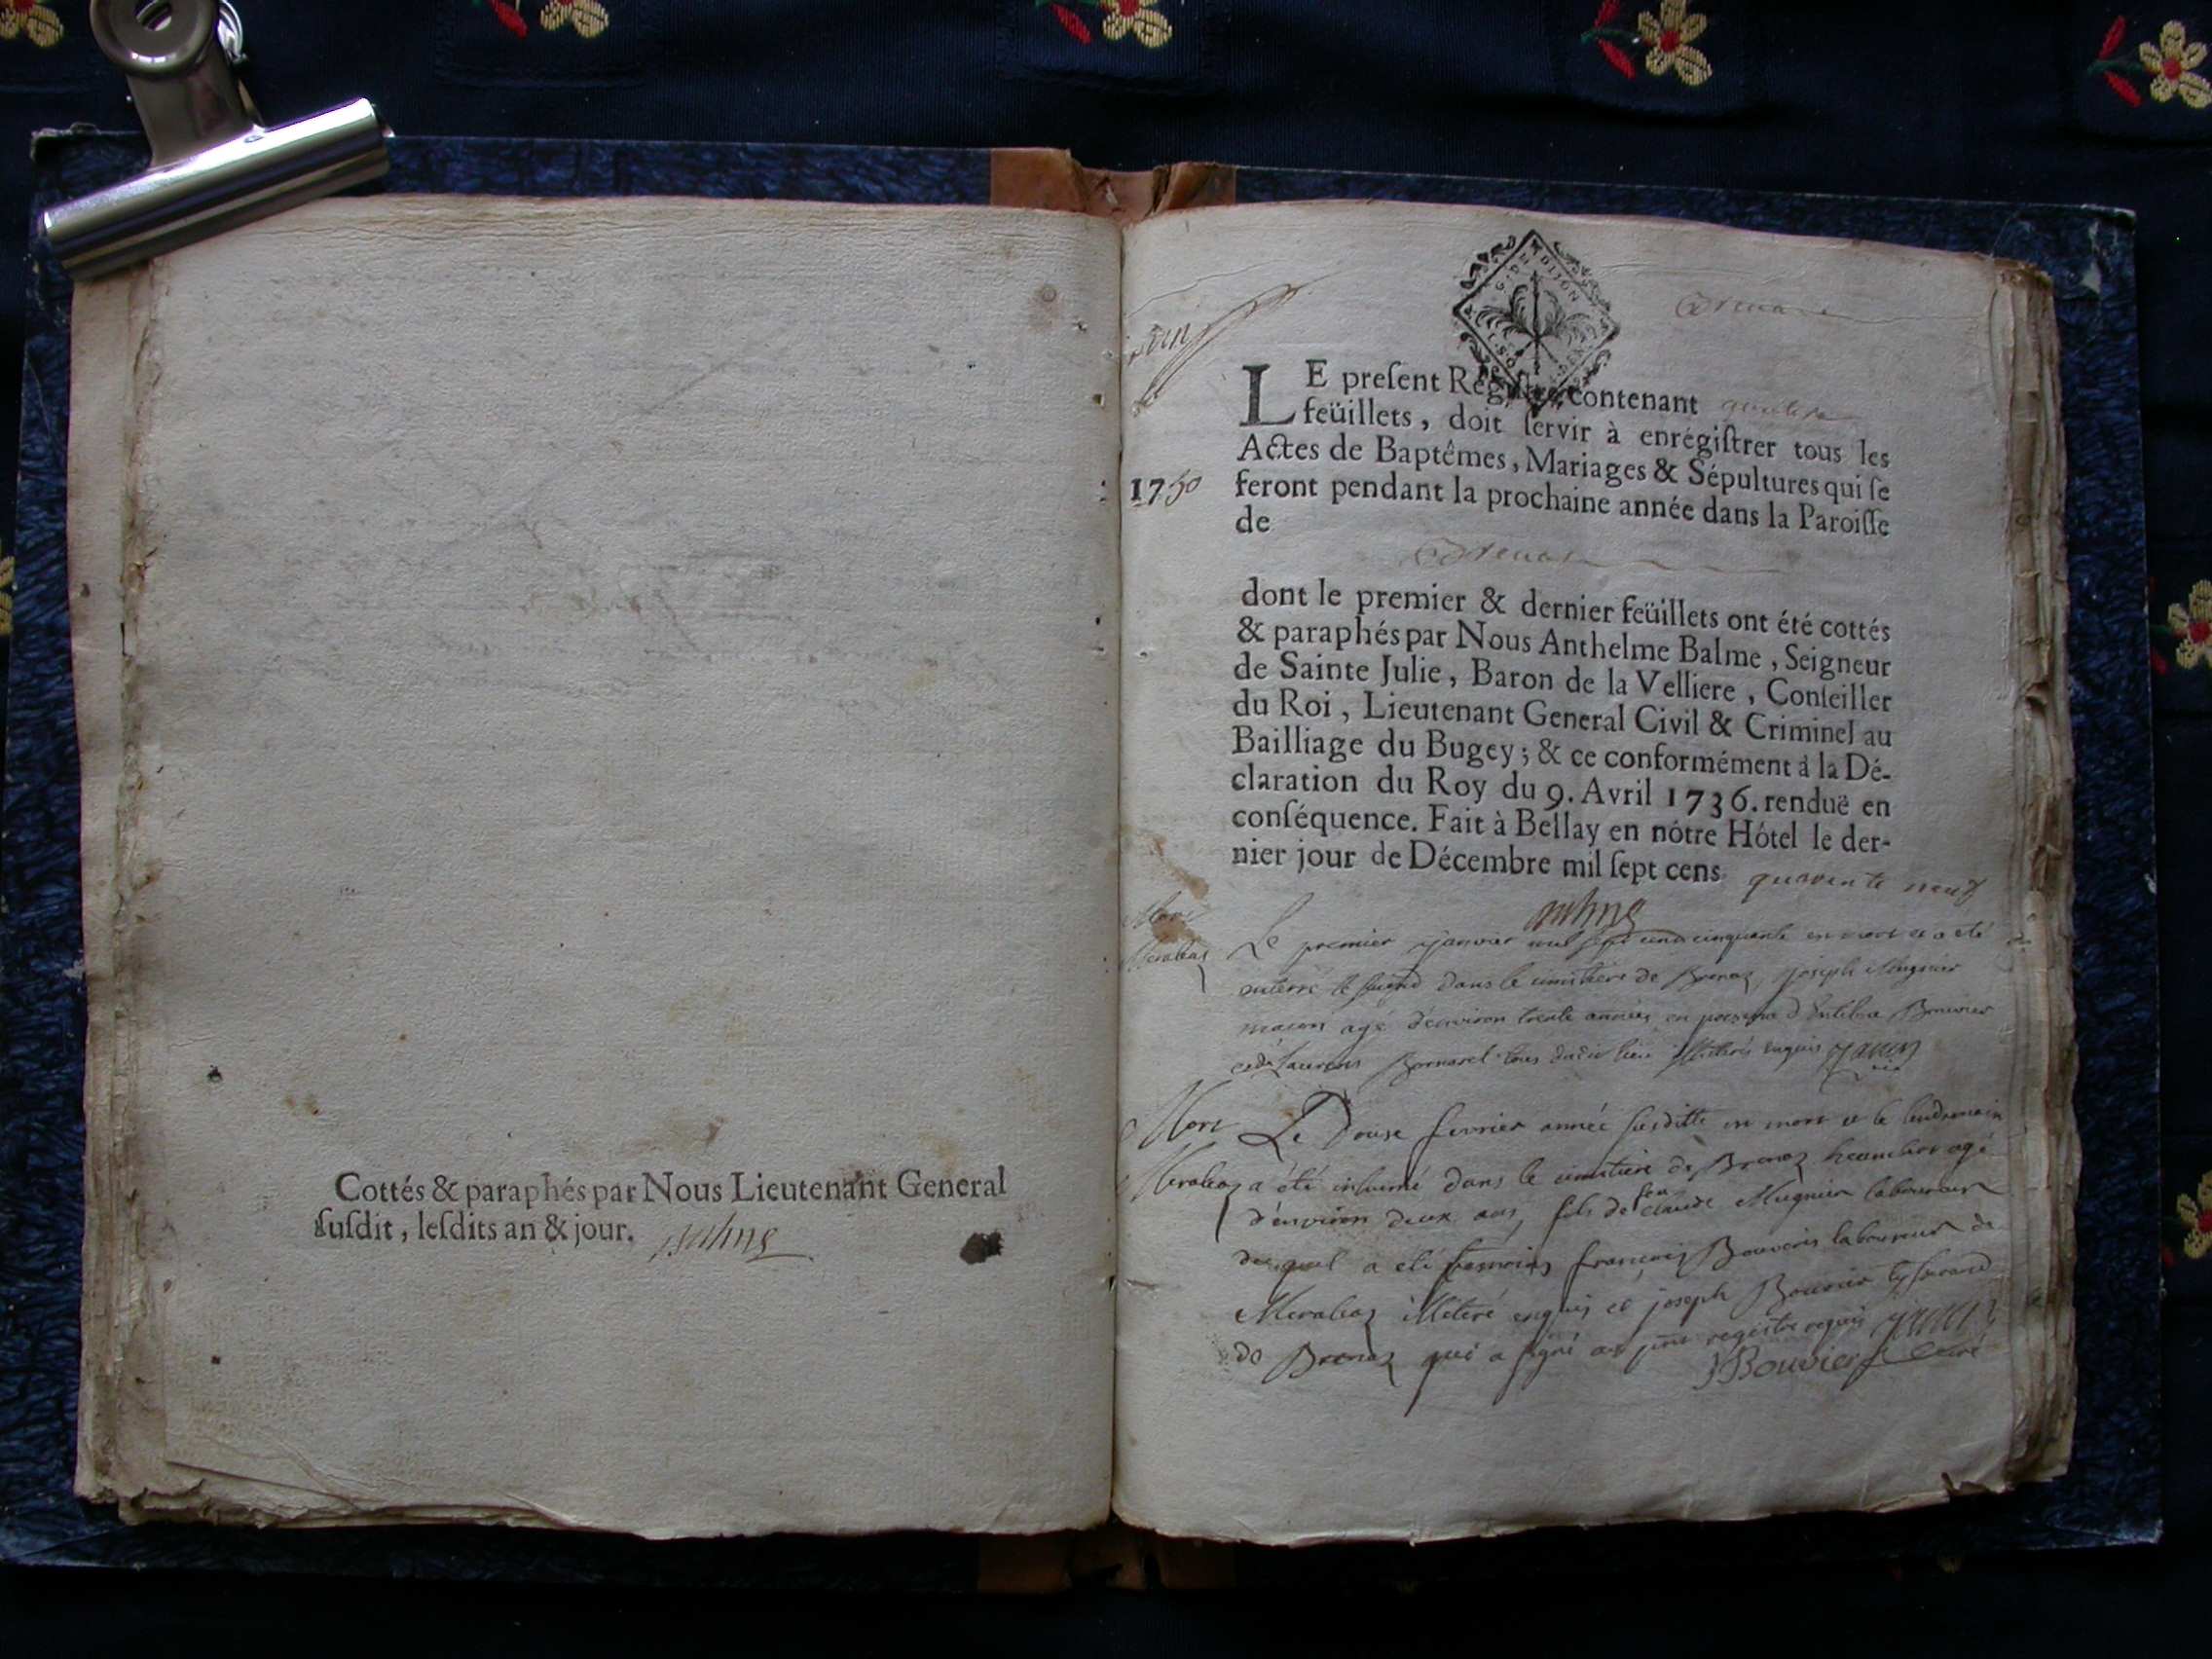 Cottés & paraphés par Nous Lieutenant General
ſuſdit, leſdits an & jour.
G. DE DIJON
LE preſent Regiſtre contenant
feüillets, doit ſervir à enrégiſtrer tous les
Actes de Baptêmes, Mariages & Sépultures qui ſe
1750 feront pendant la prochaine année dans la Paroiſſe
de
Brenas
dont le premier & dernier feüillets ont été cottés
& paraphés par Nous Anthelme Balme, Seigneur
de Sainte Julie, Baron de la Velliere, Conſeiller
du Roi, Lieutenant General Civil & Criminel au
Bailliage du Bugey; & ce conformément à la Dé-
claration du Roy du 9. Avril 1736. renduë en
conſéquence. Fait à Bellay en nôtre Hôtel le der-
nier jour de Décembre mil ſept cens quarente neuf
Mort
Meraleaz
Le premier janvier mil sept cens cinquante est mort et a été
enterré le second dans le cimitiere de Brenaz, joseph Mugnier
macon agé d'environ trente années en presence d' Bouvier
et de Laurens Bornarel tous dudit lieu illiterés enquis
Mort
Meraleaz
Le Douse fevrier année susditte est mort et le lendemain
a été inhumé dans le cimitiere de Brenaz agé
d'environ deux ans, fils de feu claude Mugnier laboureur
duquel a été temoins françois Bouvier laboureur de
Meraleaz illiteré enquis et joseph Bouvier tisserand
de Brenaz qui a signé au registre requis
JBouvier curé